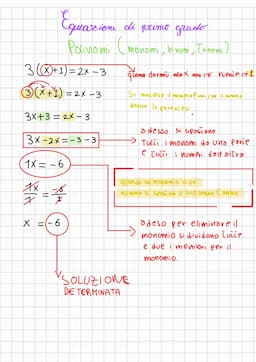 Equazioni di primo grado
Polinomi (monomi, binomi, Trinomi)
3(x+1)=2x-3
quando davanti alla x non c'è numero è 1
3(x+1)=2x-3
Si moltiplica il numero fuori con il numero
dentro la parentesi
3x+3=2x-3
3x-2x=-3-3
adesso si spostano
Tutti i monomi da una parte
e Tutti i numeri dall'altra
1x=-6
quando un monomio o un
numero si sposta
1x/1 = -6/1
x = -6
adesso per eliminare il
monomio si dividono tutti
e due i membri per il
monomio.
SOLUZIONE
DETERMINATA